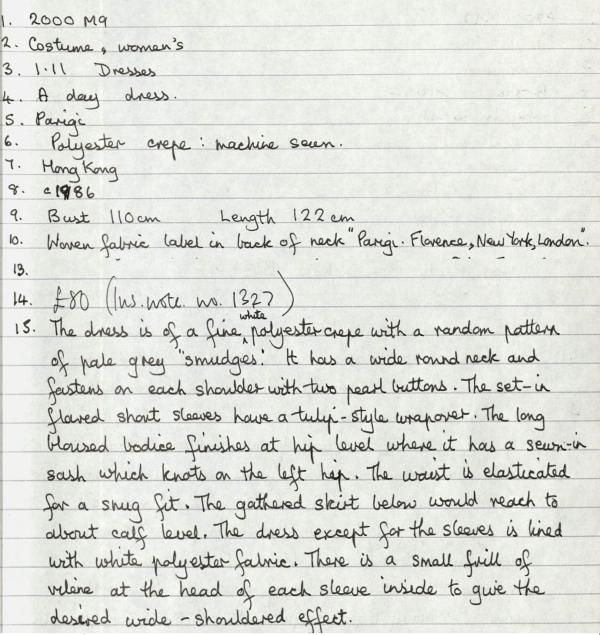 1. 2000 M9
2. Costume, women's
3. 1.11 Dresses
4. A day dress.
5. Parigi
6. Polyester crepe : machine sewn.
7. Hong Kong
8. c1986
9. Bust 110cm Length 122 cm
10. Woven fabric label in back of neck "Parigi. Florence, New York, London".
13.
14. £80 (Ins. note. no. 1327)
white
15. The dress is of a fine polyester crepe with a random pattern
of pale grey "smudges". It has a wide round neck and
fastens on each shoulder with two pearl buttons. The set-in
flared short sleeves have a tulip-style wrapover. The long
bloused bodice finishes at hip level where it has a sewn-in
sash which knots on the left hip. The waist is elasticated
for a snug fit. The gathered skirt below would reach to
about calf level. The dress except for the sleeves is lined
with white polyester fabric. There is a small frill of
vilene at the head of each sleeve inside to give the
desired wide-shouldered effect.